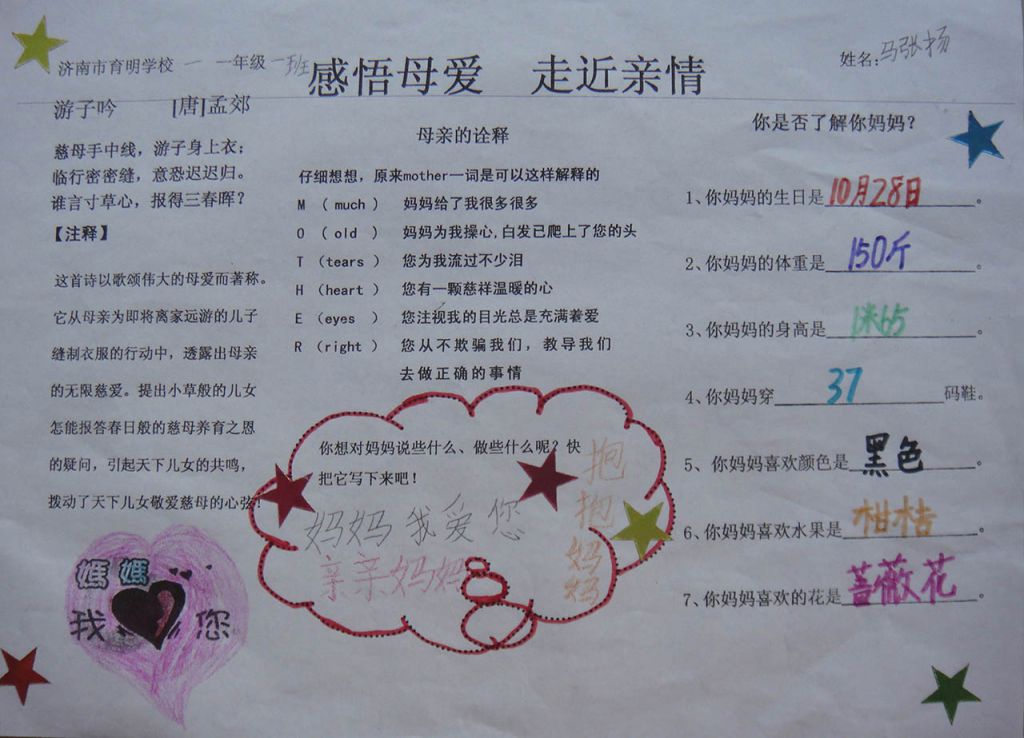 济南市育明学校 一 一年级一班
感悟母爱 走近亲情
姓名:马张扬
游子吟 [唐]孟郊
慈母手中线，游子身上衣；
临行密密缝，意恐迟迟归。
谁言寸草心，报得三春晖？
【注释】
这首诗以歌颂伟大的母爱而著称。
它从母亲为即将离家远游的儿子
缝制衣服的行动中，透露出母亲
的无限慈爱。提出小草般的儿女
怎能报答春日般的慈母养育之恩
的疑问，引起天下儿女的共鸣，
拨动了天下儿女敬爱慈母的心弦！
媽媽
我 您
母亲的诠释
仔细想想，原来mother一词是可以这样解释的
M （much） 妈妈给了我很多很多
O （old） 妈妈为我操心,白发已爬上了您的头
T （tears） 您为我流过不少泪
H （heart） 您有一颗慈祥温暖的心
E （eyes） 您注视我的目光总是充满着爱
R （right） 您从不欺骗我们，教导我们
去做正确的事情
你想对妈妈说些什么、做些什么呢？快
把它写下来吧！
妈妈我爱您
亲亲妈妈
抱抱妈妈
你是否了解你妈妈？
1、你妈妈的生日是10月28日。
2、你妈妈的体重是150斤。
3、你妈妈的身高是1米65。
4、你妈妈穿37码鞋。
5、你妈妈喜欢颜色是黑色。
6、你妈妈喜欢水果是柑桔。
7、你妈妈喜欢的花是蔷薇花。